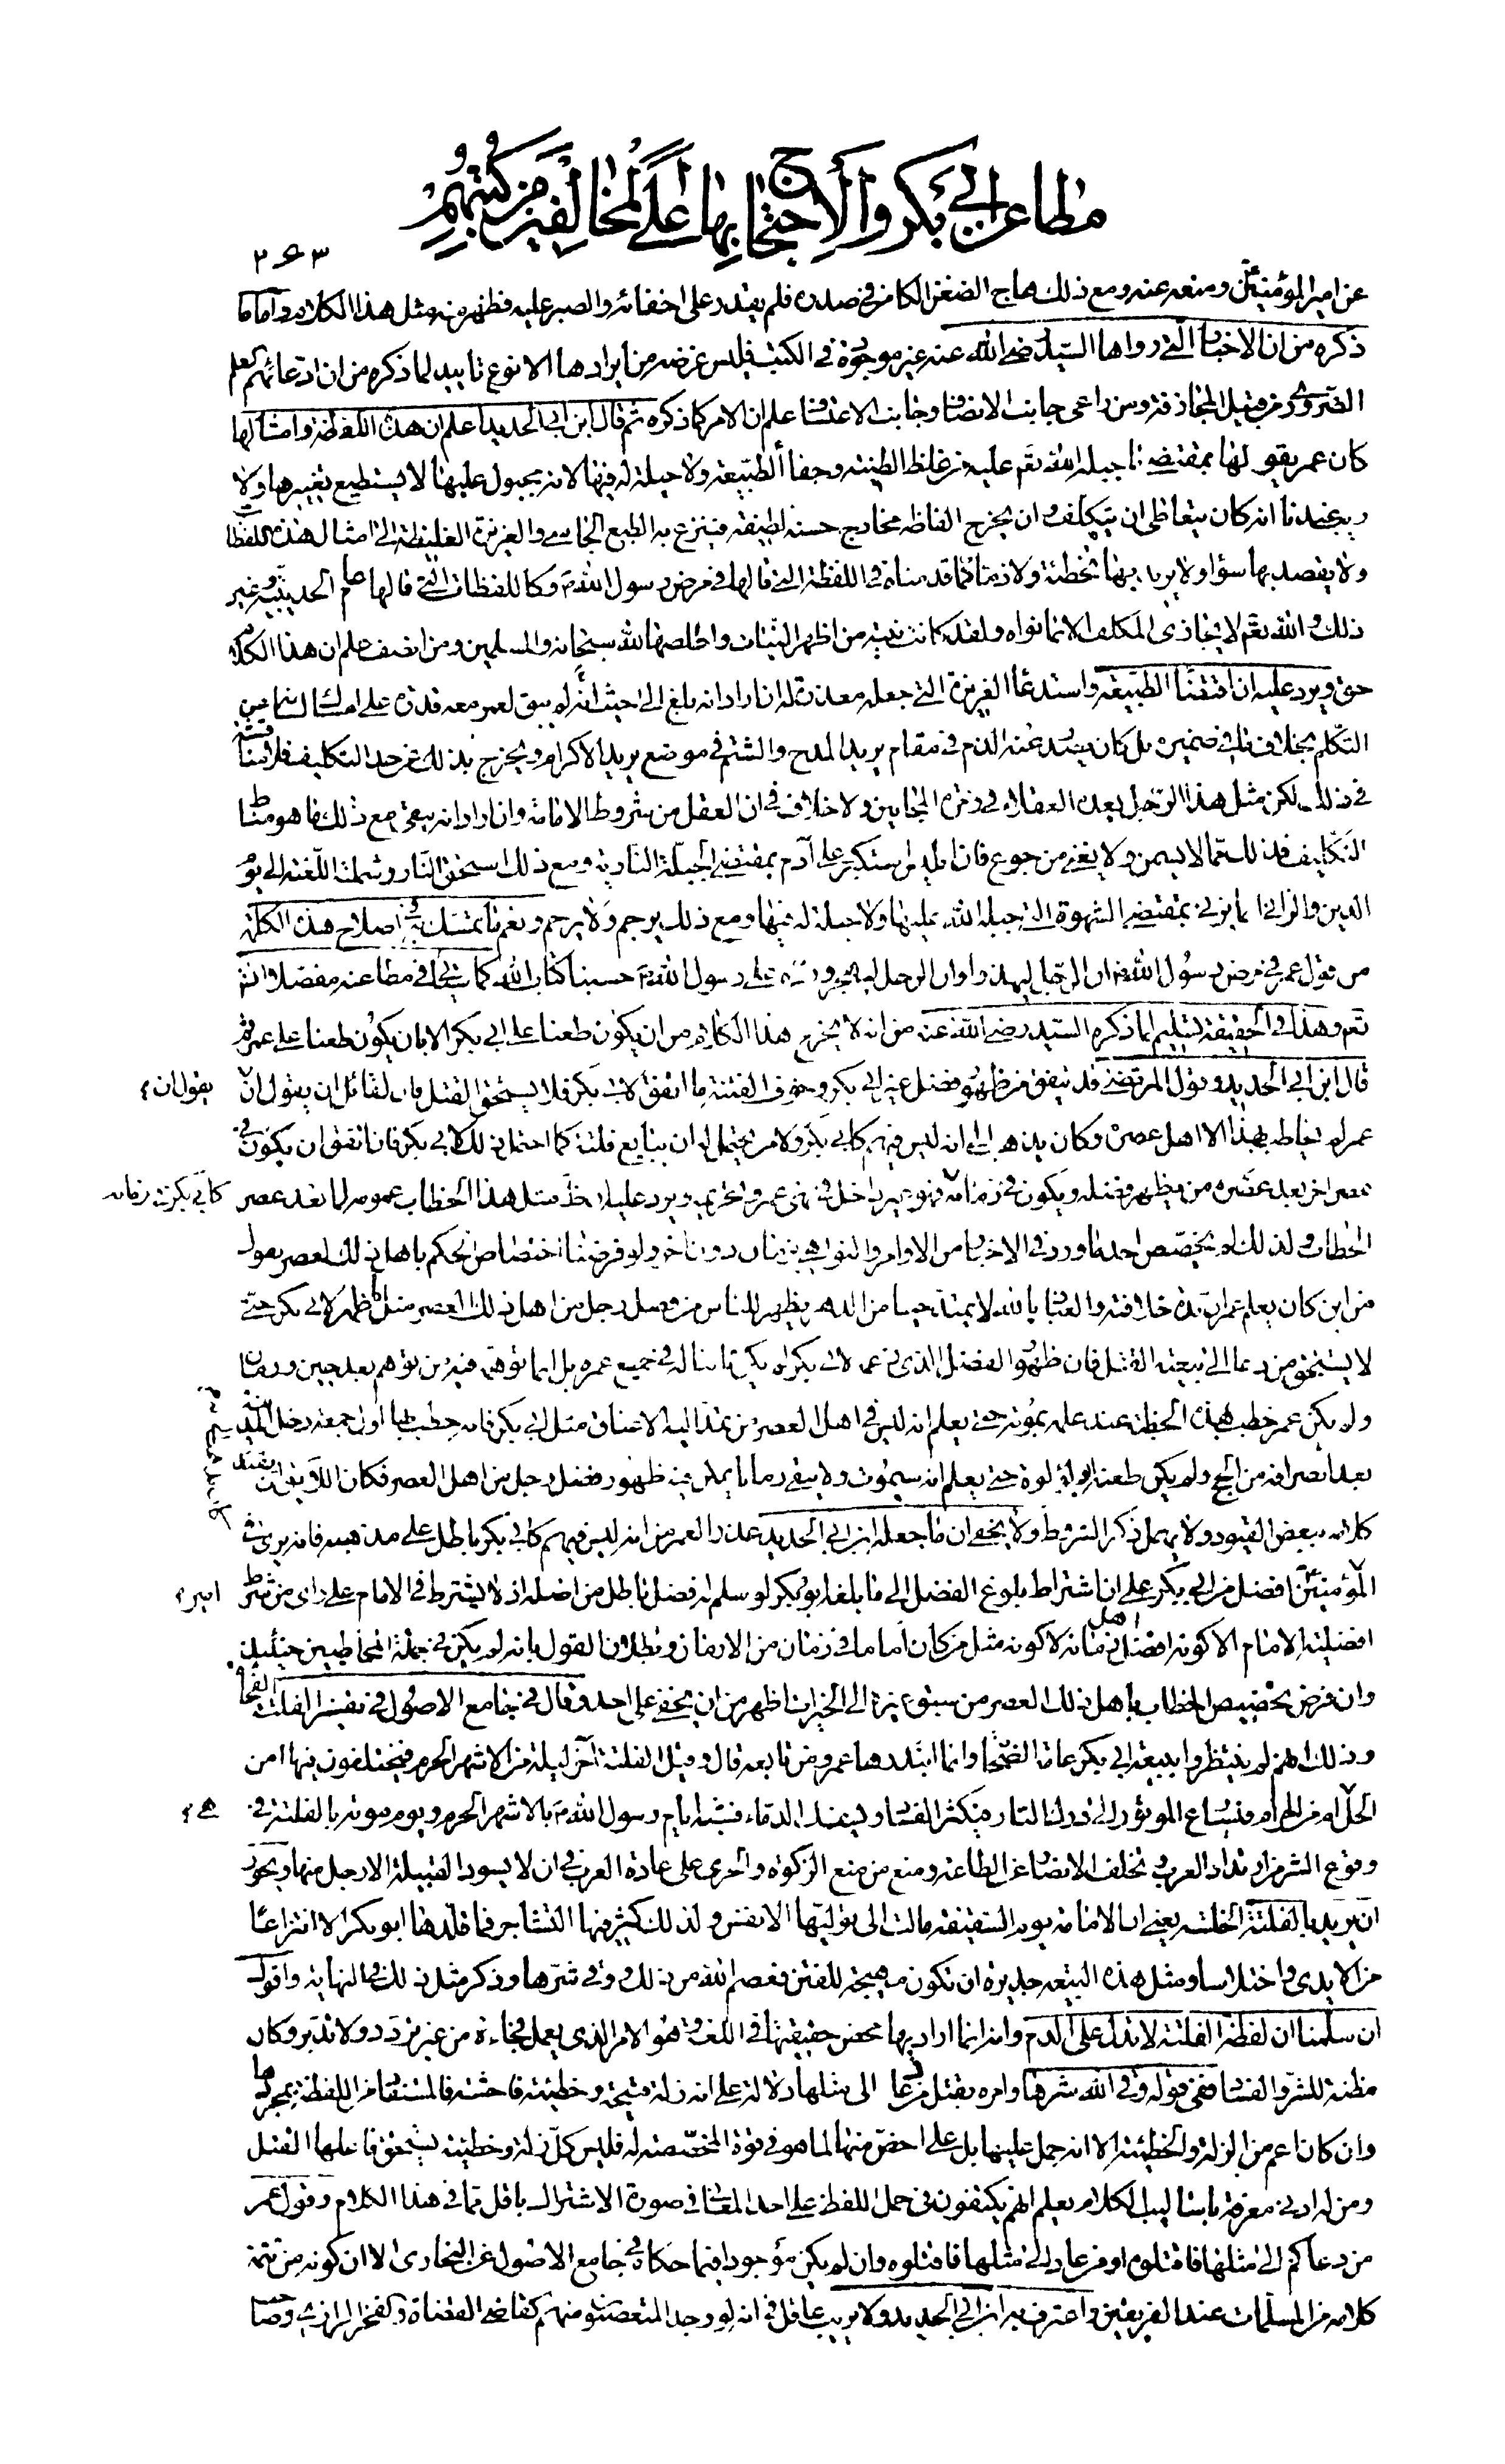 مطاعن أبي بكر والاحتجاج بها على المخالفين من كتبهم
٢٦٣
عن امير المؤمنين ومنعه عنه ومع ذلك هاج الضغن الكامن في صدره فلم يقدر على اخفائه والصبر عليه فظهر منه مثل هذا الكلام واما ما
ذكره من ان الاخبار التي رواها السيد رضي الله عنه غير موجودة في الكتب فليس غرضه من ايرادها الا نوع تاييد لما ذكره من ان ادعائهم العلم
الضروري من قبيل المجازفة ومن راعى جانب الانصاف وجانب الاعتساف علم ان الامر كما ذكره ثم قال ابن ابي الحديد اعلم ان هذه اللفظة وامثالها
كان عمر يقولها بمقتضى ما جبله الله تع عليه من غلظ الطينة وجفاء الطبيعة ولا حيلة له فيها لانه مجبول عليها لا يستطيع تغييرها ولا
ريب عندنا انه كان يتعاطى ان يتكلف وان يخرج الفاظه مخارج حسنة لطيفة فينزع به الطبع الجاسي والغريزة الغليظة الى امثال هذه اللفظات
ولا يقصد بها سوأ ولا يريد بها تخطئة ولا ذما كما قدمناه في اللفظة التي قالها في مرض رسول الله ص وكاللفظات التي قالها عام الحديبية وغير
ذلك والله تع لا يجازي المكلف الا بما نواه ولقد كانت نيته من اطهر النيات واخلصها لله سبحانه والمسلمين ومن انصف علم ان هذا الكلام
حق ويرد عليه ان اقتضاء الطبيعة واستدعاء الغريزة التي جعله معذرة له ان اراد انه بلغ الى حيث انه لم يبق لعمر معه قدرة على امساك لسانه عن
التكلم بخلاف ما في ضميره بل كان يصدر عنه الذم في مقام يريد المدح والشتم في موضع يريد الاكرام ويخرج بذلك عن حد التكليف فلا مناقشة
في ذلك لكن مثل هذا الرجل يعده العقلاء في زمرة المجانين ولا خلاف في ان العقل من شروط الامامة وان اراد انه يبقى مع ذلك ما هو مناط
التكليف فذلك مما لا يسمن ولا يغني من جوع فان ابليس استكبر على آدم بمقتضى الجبلة النارية ومع ذلك استحق النار وشملته اللعنة الى يوم
الدين والزاني انما يزني بمقتضى الشهوة التي جبله الله عليها ولا حيلة له فيها ومع ذلك يرجم ولا يرحم ونعم ما تمسك به في اصلاح هذه الكلمة
من قول عمر في مرض رسول الله ص ان الرجل ليهذر او ان الرجل ليهجر ورده على رسول الله ص حسبنا كتاب الله كما سيأتي في مطاعنه مفصلا انش
تع وهذا في الحقيقة تسليم لما ذكره السيد رضي الله عنه من انه لا يخرج هذا الكلام من ان يكون طعنا على ابي بكر الا بان يكون طعنا على عمر ثم
قال ابن ابي الحديد وقول المرتضى قد يتفق من ظهور فضل غير ابي بكر وخوف الفتنة ما اتفق لابي بكر فلا يستحق القتل فان لقائل ان يقول ان
يقول ان
عمر لم يخاطب بهذا الا اهل عصره وكان يذهب الى ان ليس فيهم كابي بكر ولا من يحتمل له ان يبايع فلتة كما احتمل ذلك لابي بكر فان اتفق ان يكون في
عصر اخر بعد عصره من يظهر فضله ويكون في زمانه فهو غير داخل في نهي عمر وتحريمه ويرد عليه مثل هذا الخطاب عموم لما بعد عصر
كابي بكر في زمانه
الخطاب ولذلك لم يخصص احد ما ورد في الاخبار من الاوامر والنواهي بزمان دون اخر ولو فرضنا اختصاص الحكم باهل ذلك العصر نقول
من اين كان يعلم عمر ان مدة خلافته والعياذ بالله لا يمتد حينا من الدهر يظهر للناس من فضل رجل من اهل ذلك العصر مثل ما ظهر لابي بكر حتى
لا يستحق من دعا الى بيعته القتل فان ظهور الفضل الذي زعمه لابي بكر لم يكن ثابتا له في جميع عمره بل انما توهمه فيه من توهم بعد حين وزمان
ولم يكن عمر خطب بهذه الخطبة عند علمه بموته حتى يعلم انه ليس في اهل العصر من تمتد اليه الاعناق مثل ابي بكر فانه خطب بها اول جمعة دخل المدينة
بعد انصرافه من الحج ولم يكن طعنه ابو لؤلؤة حتى يعلم انه سيموت ولا يبقى زمانا يمكن فيه ظهور فضل رجل من اهل العصر فكان اللازم ان يقيد
كلامه ببعض القيود ولا يهمل ذكر الشروط ولا يخفى ان ما جعله ابن ابي الحديد عذرا لعمر من انه ليس فيهم كابي بكر باطل على مذهبه فانه يرى
المؤمنين افضل من ابي بكر على ان اشتراط بلوغ الفضل الى ما بلغه ابو بكر لو سلم له فضل باطل من اصله اذ لا يشترط في الامام على راي من شرط
امير
افضلية الامام الا كونه افضل اهل زمانه لا كونه مثل من كان اماما في زمان من الازمان وبطلان القول بانه لم يكن في جملة المخاطبين حينئذ
وان فرض تخصيص الخطاب باهل ذلك العصر من سبق غيره الى الخيرات اظهر من ان يخفى على احد وقال في جامع الاصول في تفسير الفلتة الفجأة
وذلك انهم لم ينتظروا ببيعة ابي بكر عامة الصحابة وانما ابتدرها عمر ومن تابعه قال وقيل الفلتة آخر ليلة من الاشهر الحرم فيختلفون فيها امن
الحل ام من الحرام فيسارع الموتور الى درك الثار فيكثر الفساد ويسفك الدماء فشبه ايام رسول الله ص بالاشهر الحرم ويوم موته بالفلتة في
وقوع الشر من ارتداد العرب وتخلف الانصار عن الطاعة ومنع من منع الزكوة والجري على عادة العرب في ان لا يسود القبيلة الا رجل منها ويجوز
ان يريد بالفلتة الخلسة يعني ان الامامة يوم السقيفة مالت الى توليها الانفس ولذلك كثر فيها التشاجر فما قلدها ابو بكر الا انتزاعا
من الايدي واختلاسا ومثل هذه البيعة جديرة ان تكون مهيجة للفتن فعصم الله من ذلك ووقى شرها وذكر مثل ذلك في النهاية واقول
ان سلمنا ان لفظة الفلتة لا تدل على الذم وانه انما اراد بها محض حقيقتها في اللغة وهو الامر الذي يعمل فجاءة من غير تردد ولا تدبر وكان
مظنة للشر والفساد ففي قوله وقى الله شرها وامره بقتل من دعا الى مثلها دلالة على انه زلة قبيحة وخطيئة فاحشة فالمستفاد من اللفظة بمجردها
وان كان اعم من الزلة والخطيئة الا انه حمل عليها بل على اخص منها لما هو في قوة المخصصة له فليس كل زلة وخطيئة يستحق فاعلها القتل
ومن له ادنى معرفة باساليب الكلام يعلم انهم يكتفون في حمل اللفظ على احد المعاني في صورة الاشتراك باقل مما في هذا الكلام وقول عمر
من دعاكم الى مثلها فاقتلوه او من عاد الى مثلها فاقتلوه وان لم يكن موجودا فيما حكاه في جامع الاصول عن البخاري الا ان كونه من تتمة
كلامه من المسلمات عند الفريقين واعترف به ابن ابي الحديد ولا يريب عاقل في انه لو وجد المتعصبون منهم كقاضي القضاة والفخر الرازي وصاحب